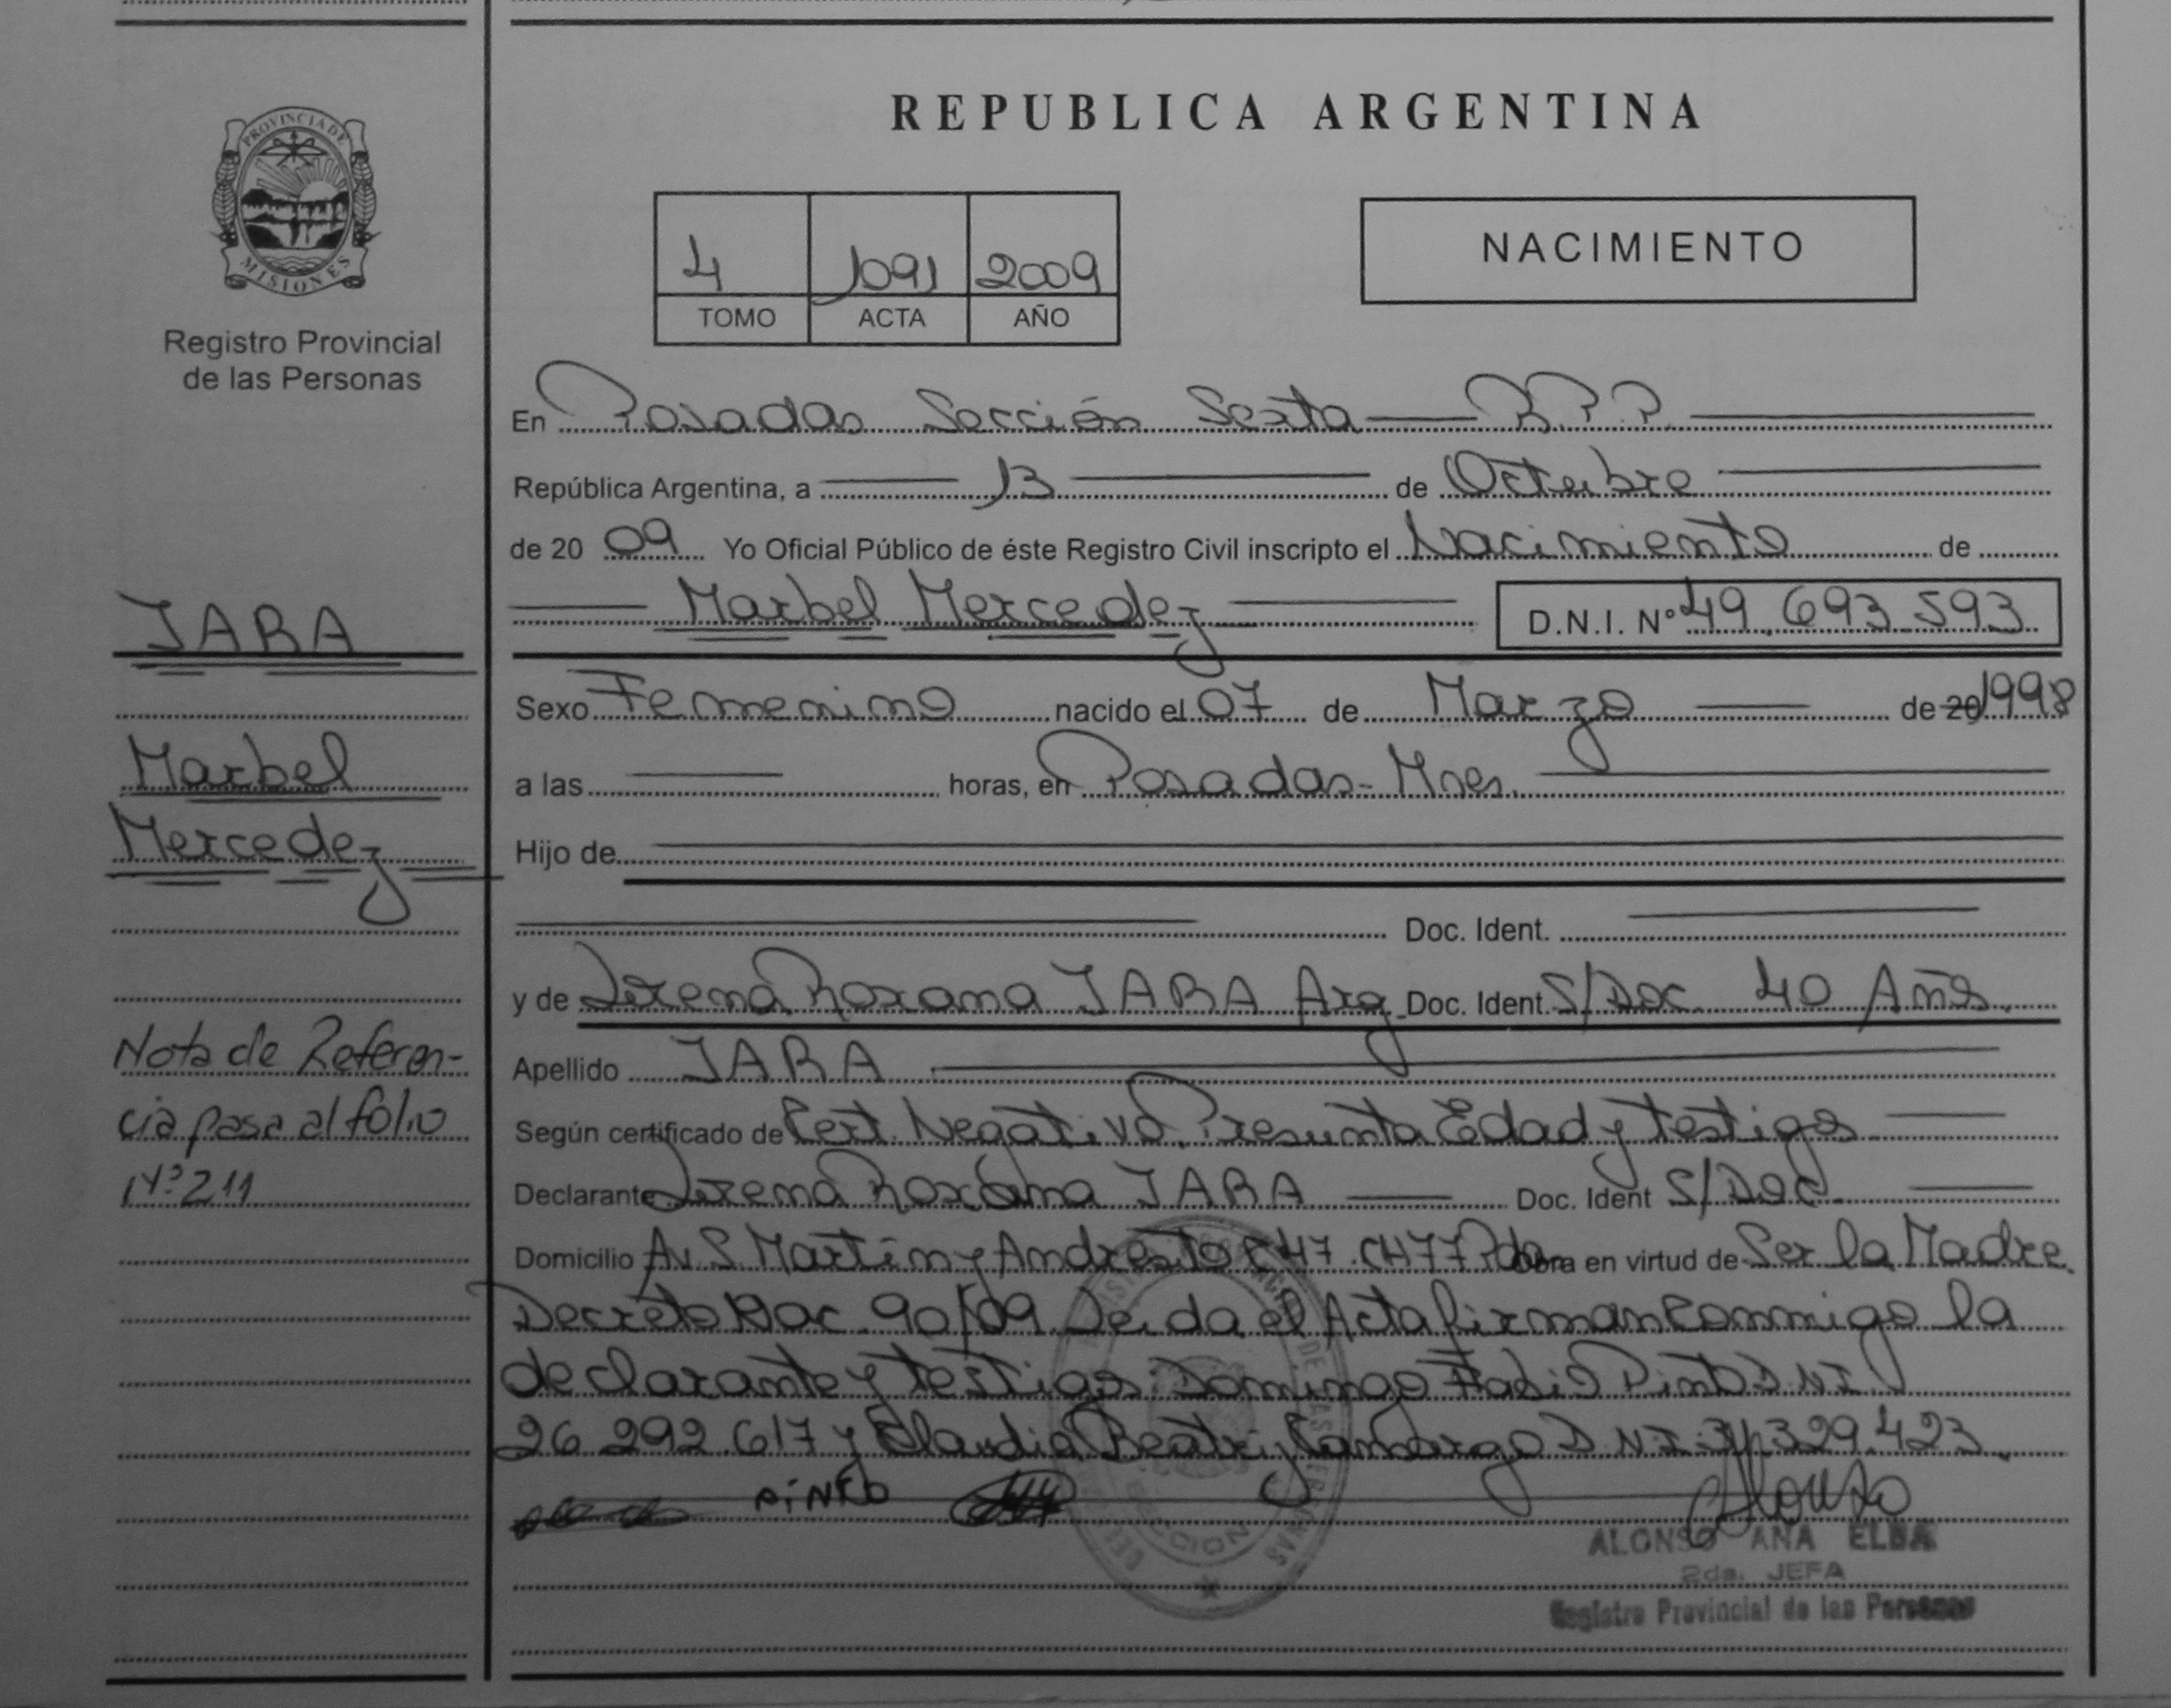 PROVINCIA DE
MISIONES
Registro Provincial
de las Personas
JARA
Marbel
Mercedez
Nota de Referen-
cia pasa al folio
Nº 211
REPUBLICA ARGENTINA
4 1091 2009
TOMO ACTA AÑO
NACIMIENTO
En Posadas Sección Sexta R.P.P.
República Argentina, a 13 de Octubre
de 20 09 Yo Oficial Público de éste Registro Civil inscripto el Nacimiento de
Marbel Mercedez D.N.I. Nº 49.693.593
Sexo Femenino nacido el 07 de Marzo de 20 1998
a las horas, en Posadas - Mnes.
Hijo de
Doc. Ident.
y de Lorena Roxana JARA Arg. Doc. Ident. S/Doc. 40 Años.
Apellido JARA
Según certificado de Cert. Negativo, Presunta Edad y testigos
Declarante Lorena Roxana JARA Doc. Ident S/Doc.
Domicilio Av. S. Martin y Andresito CH7 Obra en virtud de Ser la Madre.
Decreto Nac. 90/09 Leida el Acta firman Conmigo la
declarante y testigos: Domingo Pinto D.N.I.
26.292.617 y Claudia Beatriz D.N.I. 31.329.423.
PINTO
Alonso
ALONSO ANA ELBA
2da. JEFA
Registro Provincial de las Personas